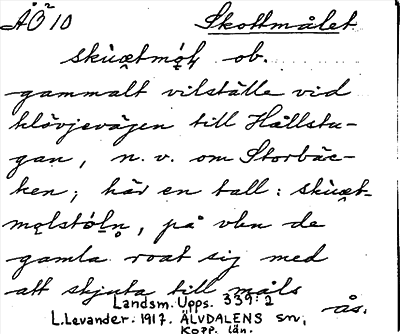 ÅÖ² 10 Skottmålet
skùætmǫ́ļ ob.
gammalt vilställe vid
klövjevägen till Hållstu-
gan, n. v. om Storbäc-
ken; här en tall: skùæt-
mǫlstǫ́ln̥, på vlken de
gamla roat sig med
att skjuta till måls
Landsm. Upps. 339:2 ås.
L.Levander. 1917. ÄLVDALENS sn,
Kopp. län.